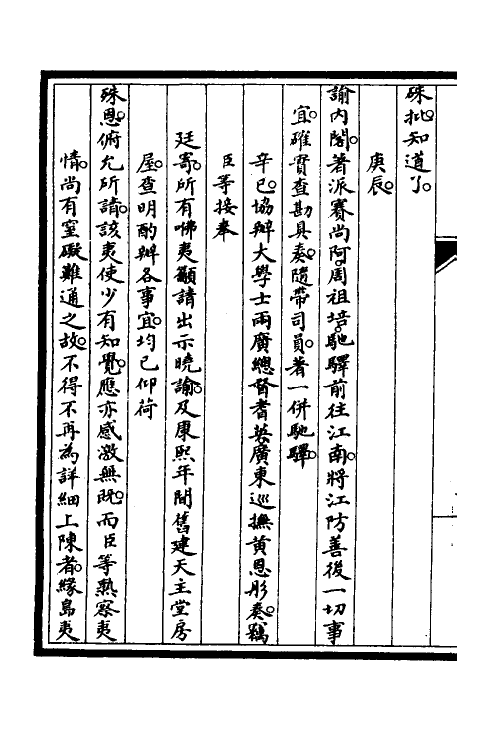 硃批知道了。
庚辰。
諭内閣。著派賽尚阿。周祖培。馳驛前往江南。將江防善後一切事
宜。確實查勘具奏。隨帶司員。著一併馳驛。
辛巳。協辦大學士兩廣總督耆英廣東巡撫黄恩彤奏。竊
臣等接奉
廷寄。所有咈夷籲請出示曉諭。及康熙年間舊建天主堂房
屋。查明酌辦各事宜。均已仰荷
硃恩。俯允所請。該夷使少有知覺。應亦感激無既。而臣等熟察夷
情。尚有窒礙難通之故。不得不再為詳細上陳者。緣島夷